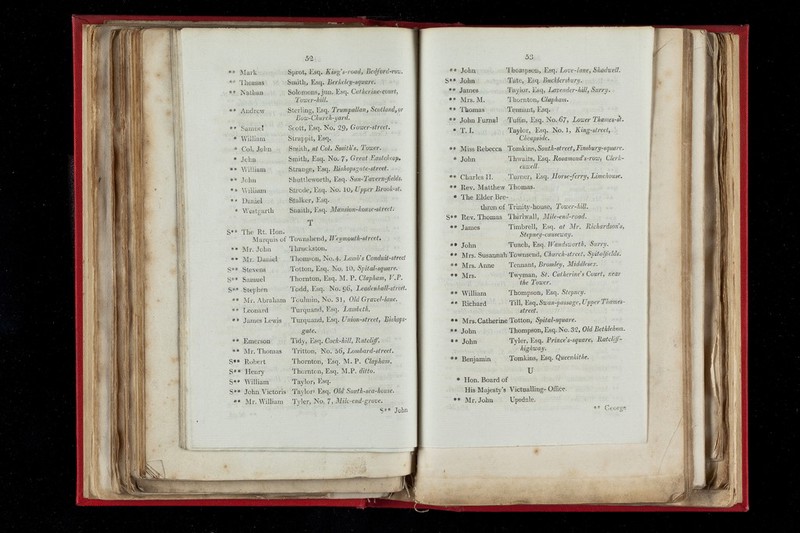 52
** Mark Sprot, Esq. King's-road, Bedford-row.
** Thomas Smith, Esq. Berkeley-square.
** Nathan Solomons, jun. Esq. Catherine-court,
Tower-hill.
** Andrew Sterling, Esq. Trumpallon, Scotland, or
Bow-Church-yard.
** Samuel Scott, Esq. No. 29, Gower-street.
* William Strappit, Esq.
* Col. John Smith, at Col. Smith's, Tower.
* John Smith, Esq. No. 7, Great Eastcheap.
** William Strange, Esq. Bishopsgate-street.
** John Shuttleworth, Esq. Sun-Tavern-fields.
** William Strode, Esq. No. 10, Upper Brook-st.
** Daniel Stalker, Esq.
* Westgarth Snaith, Esq. Mansion-house-street.
T
S** The Rt. Hon.
Marquis of Townshend, Weymouth-street.
** Mr. John Throckston.
** Mr. Daniel Thomson, No. 4, Lamb's Conduit-street
S** Stevens Totton, Esq. No. 10, Spital-square.
S** Samuel Thornton, Esq. M. P. Clapham, V.P.
S** Stephen Todd, Esq. No. 96, Leadenhall-street.
** Mr. Abraham Toulmin, No. 31, Old Gravel-lane.
** Leonard Turquand, Esq. Lambeth.
** James Lewis Turquand, Esq. Union-street, Bishops-
gate.
** Emerson Tidy, Esq. Cock-hill, Ratcliff.
** Mr. Thomas Tritton, No. 56, Lombard-street.
S** Robert Thornton, Esq. M. P. Clapham.
S** Henry Thornton, Esq. M.P. ditto.
S** William Taylor, Esq.
S** John Victoris Taylor, Esq. Old South-sea-house.
** Mr. William Tyler, No. 7, Mile-end-grove.
S** John
53
** John Thompson, Esq. Love-lane, Shadwell.
S** John Tate, Esq. Bucklersbury.
** James Taylor, Esq. Lavender-hill, Surry.
** Mrs. M. Thornton, Clapham.
** Thomas Tennant, Esq.
** John Furnal Tuffin, Esq. No. 67, Lower Thames-st.
* T. I. Taylor, Esq. No. 1, King-street,
Cheapside.
** Miss Rebecca Tomkins, South-street, Finsbury-square.
* John Thwaits, Esq. Rosamond's-row, Clerk-
enwell
** Charles H. Turner, Esq. Horse-ferry, Limehouse.
** Rev. Matthew Thomas.
* The Elder Bre-
thren of Trinity-house, Tower-hill.
S** Rev. Thomas Thirlwall, Mile-end-road.
** James Timbrell, Esq. at Mr. Richardson's,
Stepney-causeway.
** John Tunch, Esq. Wandsworth, Surry.
** Mrs. Susannah Townsend, Church-street, Spitalfields.
** Mrs. Anne Tennant, Bromley, Middlesex.
** Mrs. Twyman, St. Catherine's Court, near
the Tower.
** William Thompson, Esq. Stepney.
** Richard Till, Esq. Swan-passage, Upper Thames-
street.
** Mrs. Catherine Totton, Spital-square.
** John Thompson, Esq. No. 32, Old Bethlehem.
** John Tyler, Esq. Prince's-square, Ratcliff-
highway.
** Benjamin Tomkins, Esq. Queenhithe.
U
* Hon. Board of
His Majesty's Victualling-Office
** Mr. John Upsdale.
** George